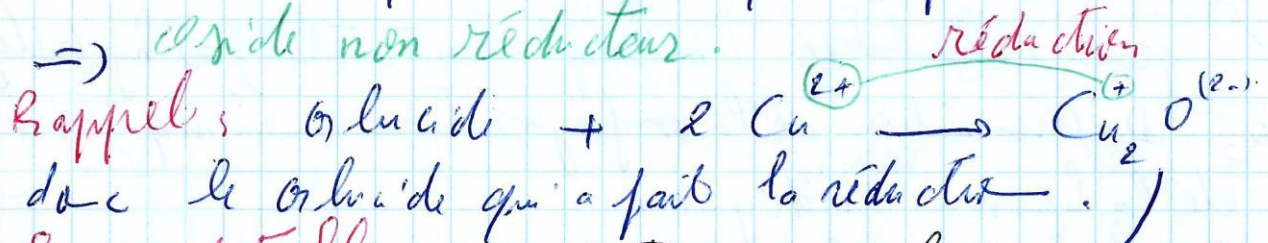 => oside non réducteur. réduction
Rappel : Glucide + 2 Cu²⁺ → Cu₂⁺ O⁽²⁻⁾
donc le Glucide qui a fait la réduction. )